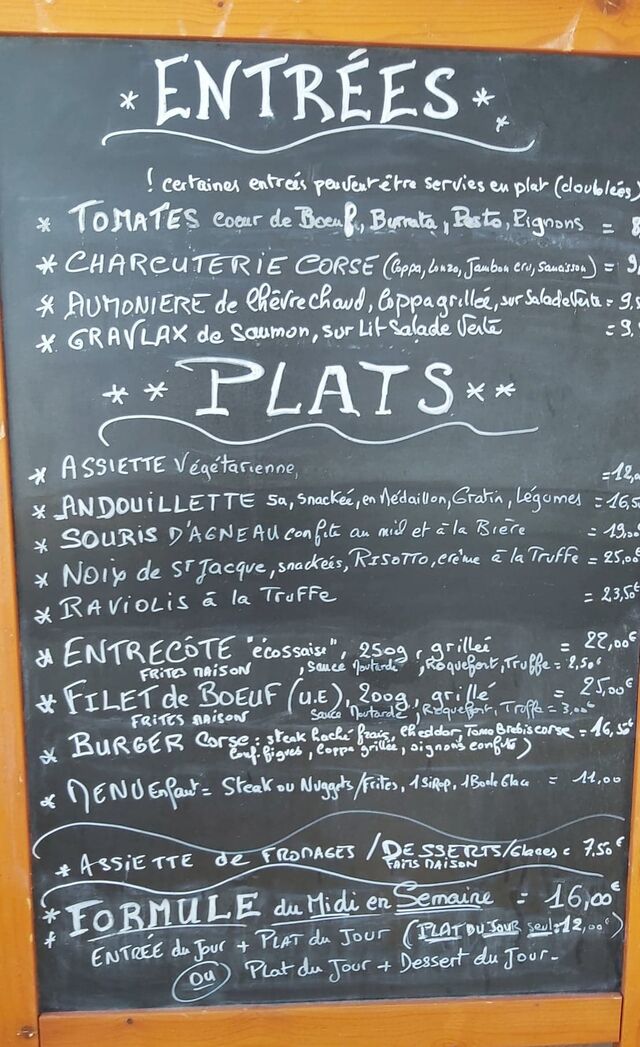 * ENTRÉES * *
! certaines entrées peuvent être servies en plat (doublées)
* TOMATES coeur de Boeuf, Burrata, Pesto, Pignons = 8
* CHARCUTERIE CORSE (Coppa, Lonzo, Jambon cru, Saucisson) = 9
* AUMONIERE de Chèvre chaud, Coppa grillée, sur Salade Verte = 9,5
* GRAVLAX de Saumon, sur Lit Salade Verte = 9,
* * PLATS * *
* ASSIETTE Végétarienne, =12,0
* ANDOUILLETTE 5a, snackée, en Médaillon, Gratin, Légumes =16,5
* SOURIS D'AGNEAU confite au miel et à la Bière = 19,00
* NOIX de ST Jacque, snackées, RISOTTO, crème à la Truffe = 25,00
* RAVIOLIS à la Truffe = 23,50€
* ENTRECÔTE "écossaise", 250g, grillée = 22,00€
FRITES MAISON , Sauce Moutarde, Roquefort, Truffe = 2,50€
* FILET de BOEUF (U.E), 200g, grillé = 25,00€
FRITES MAISON Sauce Moutarde, Roquefort, Truffe = 3,00€
* BURGER Corse : steak haché frais, Cheddar, Tomo Brebis corse = 16,50€
Conf. figues, Coppa grillée, oignons confits)
* MENU Enfant = Steak ou Nuggets/Frites, 1 Sirop, 1 Boule Glace = 11,00
* ASSIETTE de FROMAGES / DESSERTS/Glaces = 7,50€
FAITS MAISON
* FORMULE du Midi en Semaine = 16,00€
* ENTRÉE du Jour + PLAT du JOUR (PLAT DU JOUR seul=12,00€)
OU Plat du Jour + Dessert du Jour-